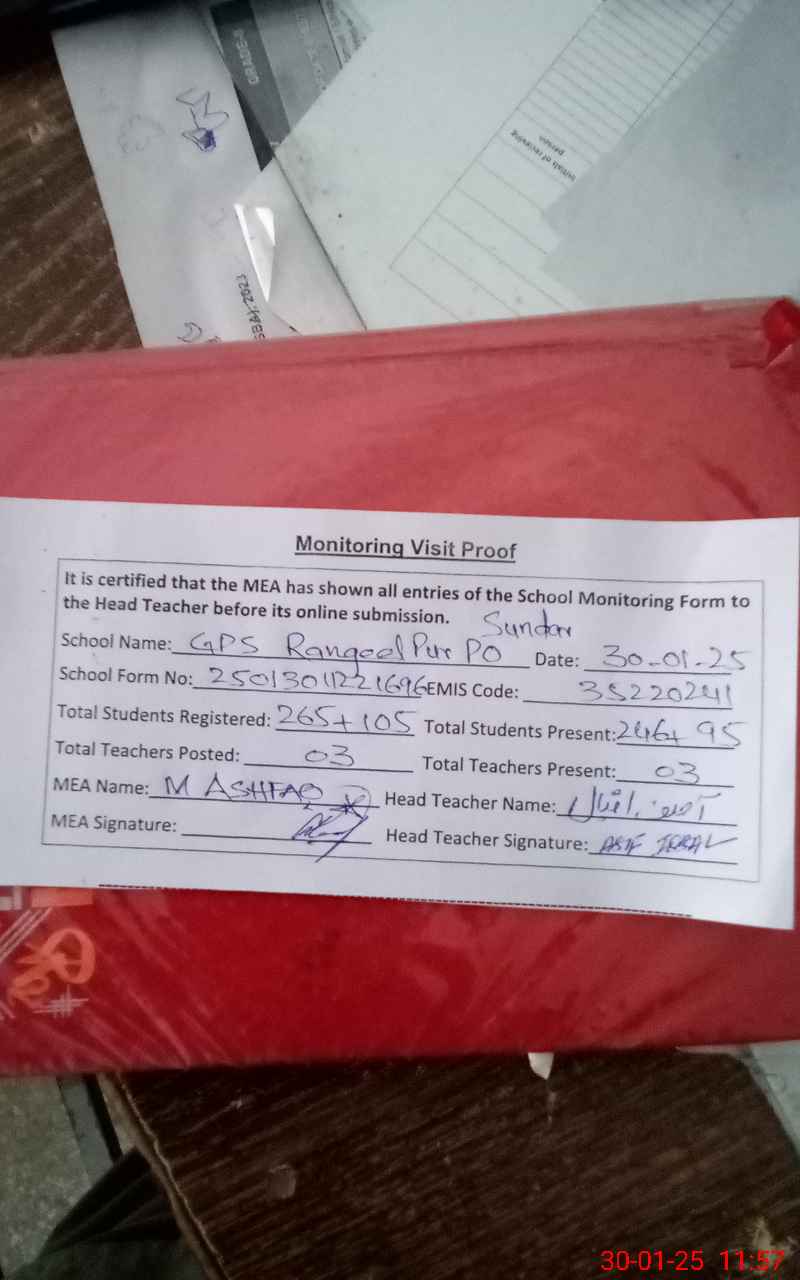 GRADE-
SBA), 2023
Initials of receiving
person
Monitoring Visit Proof
It is certified that the MEA has shown all entries of the School Monitoring Form to
the Head Teacher before its online submission.
Sundar
School Name: GPS Rangeel Pur PO Date: 30-01-25
School Form No: 25013011221696 EMIS Code: 35220241
Total Students Registered: 265+105 Total Students Present: 246+ 95
Total Teachers Posted: 03 Total Teachers Present: 03
MEA Name: M ASHFAQ Head Teacher Name: آصف اقبال
MEA Signature: Head Teacher Signature: ASIF IQBAL
30-01-25 11:57